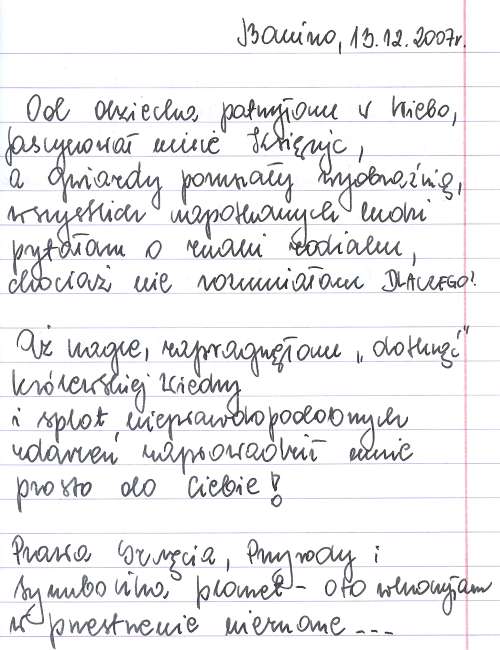 Banino, 13.12.2007r.
Od dziecka patrzyłam w niebo,
fascynował mnie Księżyc,
a Gwiazdy poruszały wyobraźnię,
wszystkich napotkanych ludzi
pytałam o znaki zodiaku,
chociaż nie rozumiałam DLACZEGO!
Aż nagle, zapragnęłam „dotknąć"
królewskiej wiedzy
i splot nieprawdopodobnych
zdarzeń, zaprowadził mnie
prosto do Ciebie!
Prawa Szczęścia, Przyrody i
symbolika planet - oto wkraczam
w przestrzenie nieznane ---